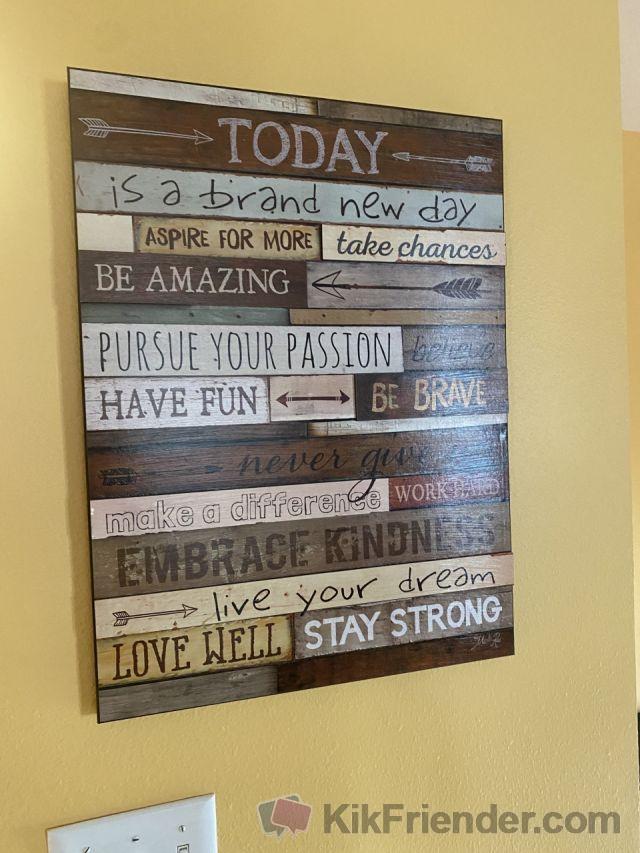 TODAY
is a brand new day
ASPIRE FOR MORE take chances
BE AMAZING
PURSUE YOUR PASSION believe
HAVE FUN BE BRAVE
never give
make a difference WORK HARD
EMBRACE KINDNESS
live your dream
LOVE WELL STAY STRONG
KikFriender.com